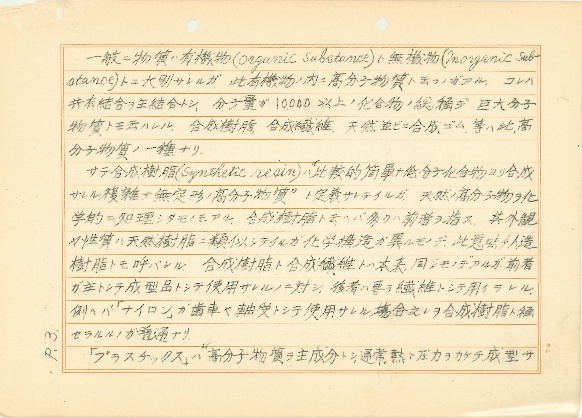 一般ニ物質ハ有機物(organic substance)ト無機物(inorganic sub-
stance)トニ大別サレルガ 此有機物ノ内ニ高分子物質ト云フノガアル. コレハ
共有結合ヲ主結合トシ, 分子量ガ10000以上ノ化合物ノ総称デ 巨大分子
物質トモ云ハレル. 合成樹脂, 合成繊維, 天然並ビニ合成ゴム等ハ此ノ高
分子物質ノ一種ナリ.
サテ合成樹脂(synthetic resin)ハ"比較的簡単ナ低分子化合物ヨリ合成
サレル複雑ナ無定形ノ高分子物質"ト定義サレテイルガ, 天然ノ高分子物ヲ化
学的ニ処理シタモノモアル. 合成樹脂ト云ヘバ ハ前者ヲ指ス. 其外観
ヤ性質ハ天然樹脂ニ類似シテイルガ化学構造ガ異ルモノデ, 此意味デ人造
樹脂トモ呼バレル. 合成樹脂ト合成繊維トハ本来, 同ジモノデアルガ前者
ガ主トシテ成型品トシテ使用サレルノニ対シ, 後者ハ専ラ繊維トシテ用イラレル.
例ヘバ「ナイロン」ガ歯車ヤ軸受トシテ使用サレル場合之レヲ合成樹脂ト称
セラルルノガ普通ナリ.
「プラスチックス」ハ"高分子物質ヲ主成分トシ, 通常熱ト圧力ヲカケテ成型サ
P.3.